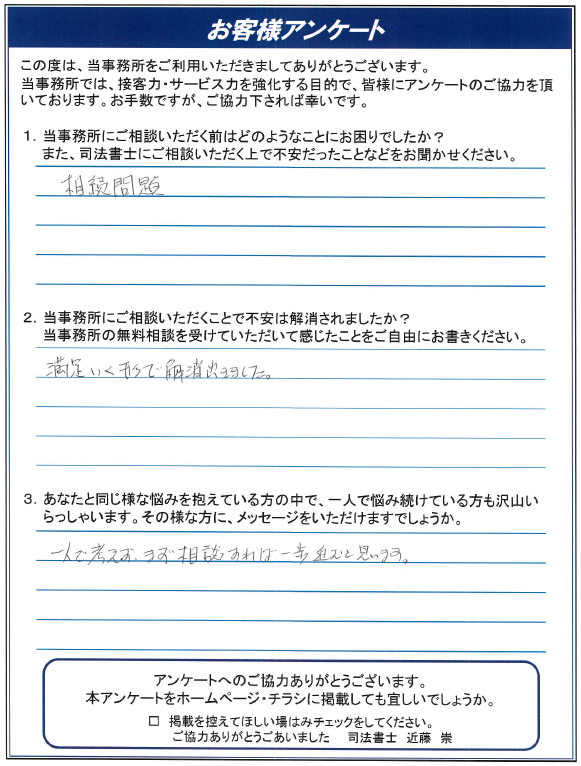 お客様アンケート
この度は、当事務所をご利用いただきましてありがとうございます。
当事務所では、接客力・サービス力を強化する目的で、皆様にアンケートのご協力を頂
いております。お手数ですが、ご協力下されば幸いです。
1. 当事務所にご相談いただく前はどのようなことにお困りでしたか？
また、司法書士にご相談いただく上で不安だったことなどをお聞かせください。
相続問題
2. 当事務所にご相談いただくことで不安は解消されましたか？
当事務所の無料相談を受けていただいて感じたことをご自由にお書きください。
満足いく形で解消出来ました。
3. あなたと同じ様な悩みを抱えている方の中で、一人で悩み続けている方も沢山い
らっしゃいます。その様な方に、メッセージをいただけますでしょうか。
一人で考えず、まず相談すれば一歩進むと思います。
アンケートへのご協力ありがとうございます。
本アンケートをホームページ・チラシに掲載しても宜しいでしょうか。
□ 掲載を控えてほしい場はみチェックをしてください。
ご協力ありがとうごあいました 司法書士 近藤 崇